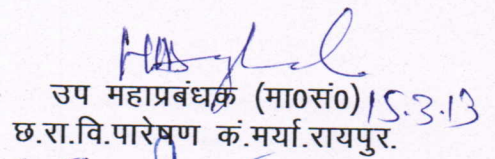 उप महाप्रबंधक (मा0सं0) 15.3.13
छ.रा.वि.पारेषण कं.मर्या.रायपुर.